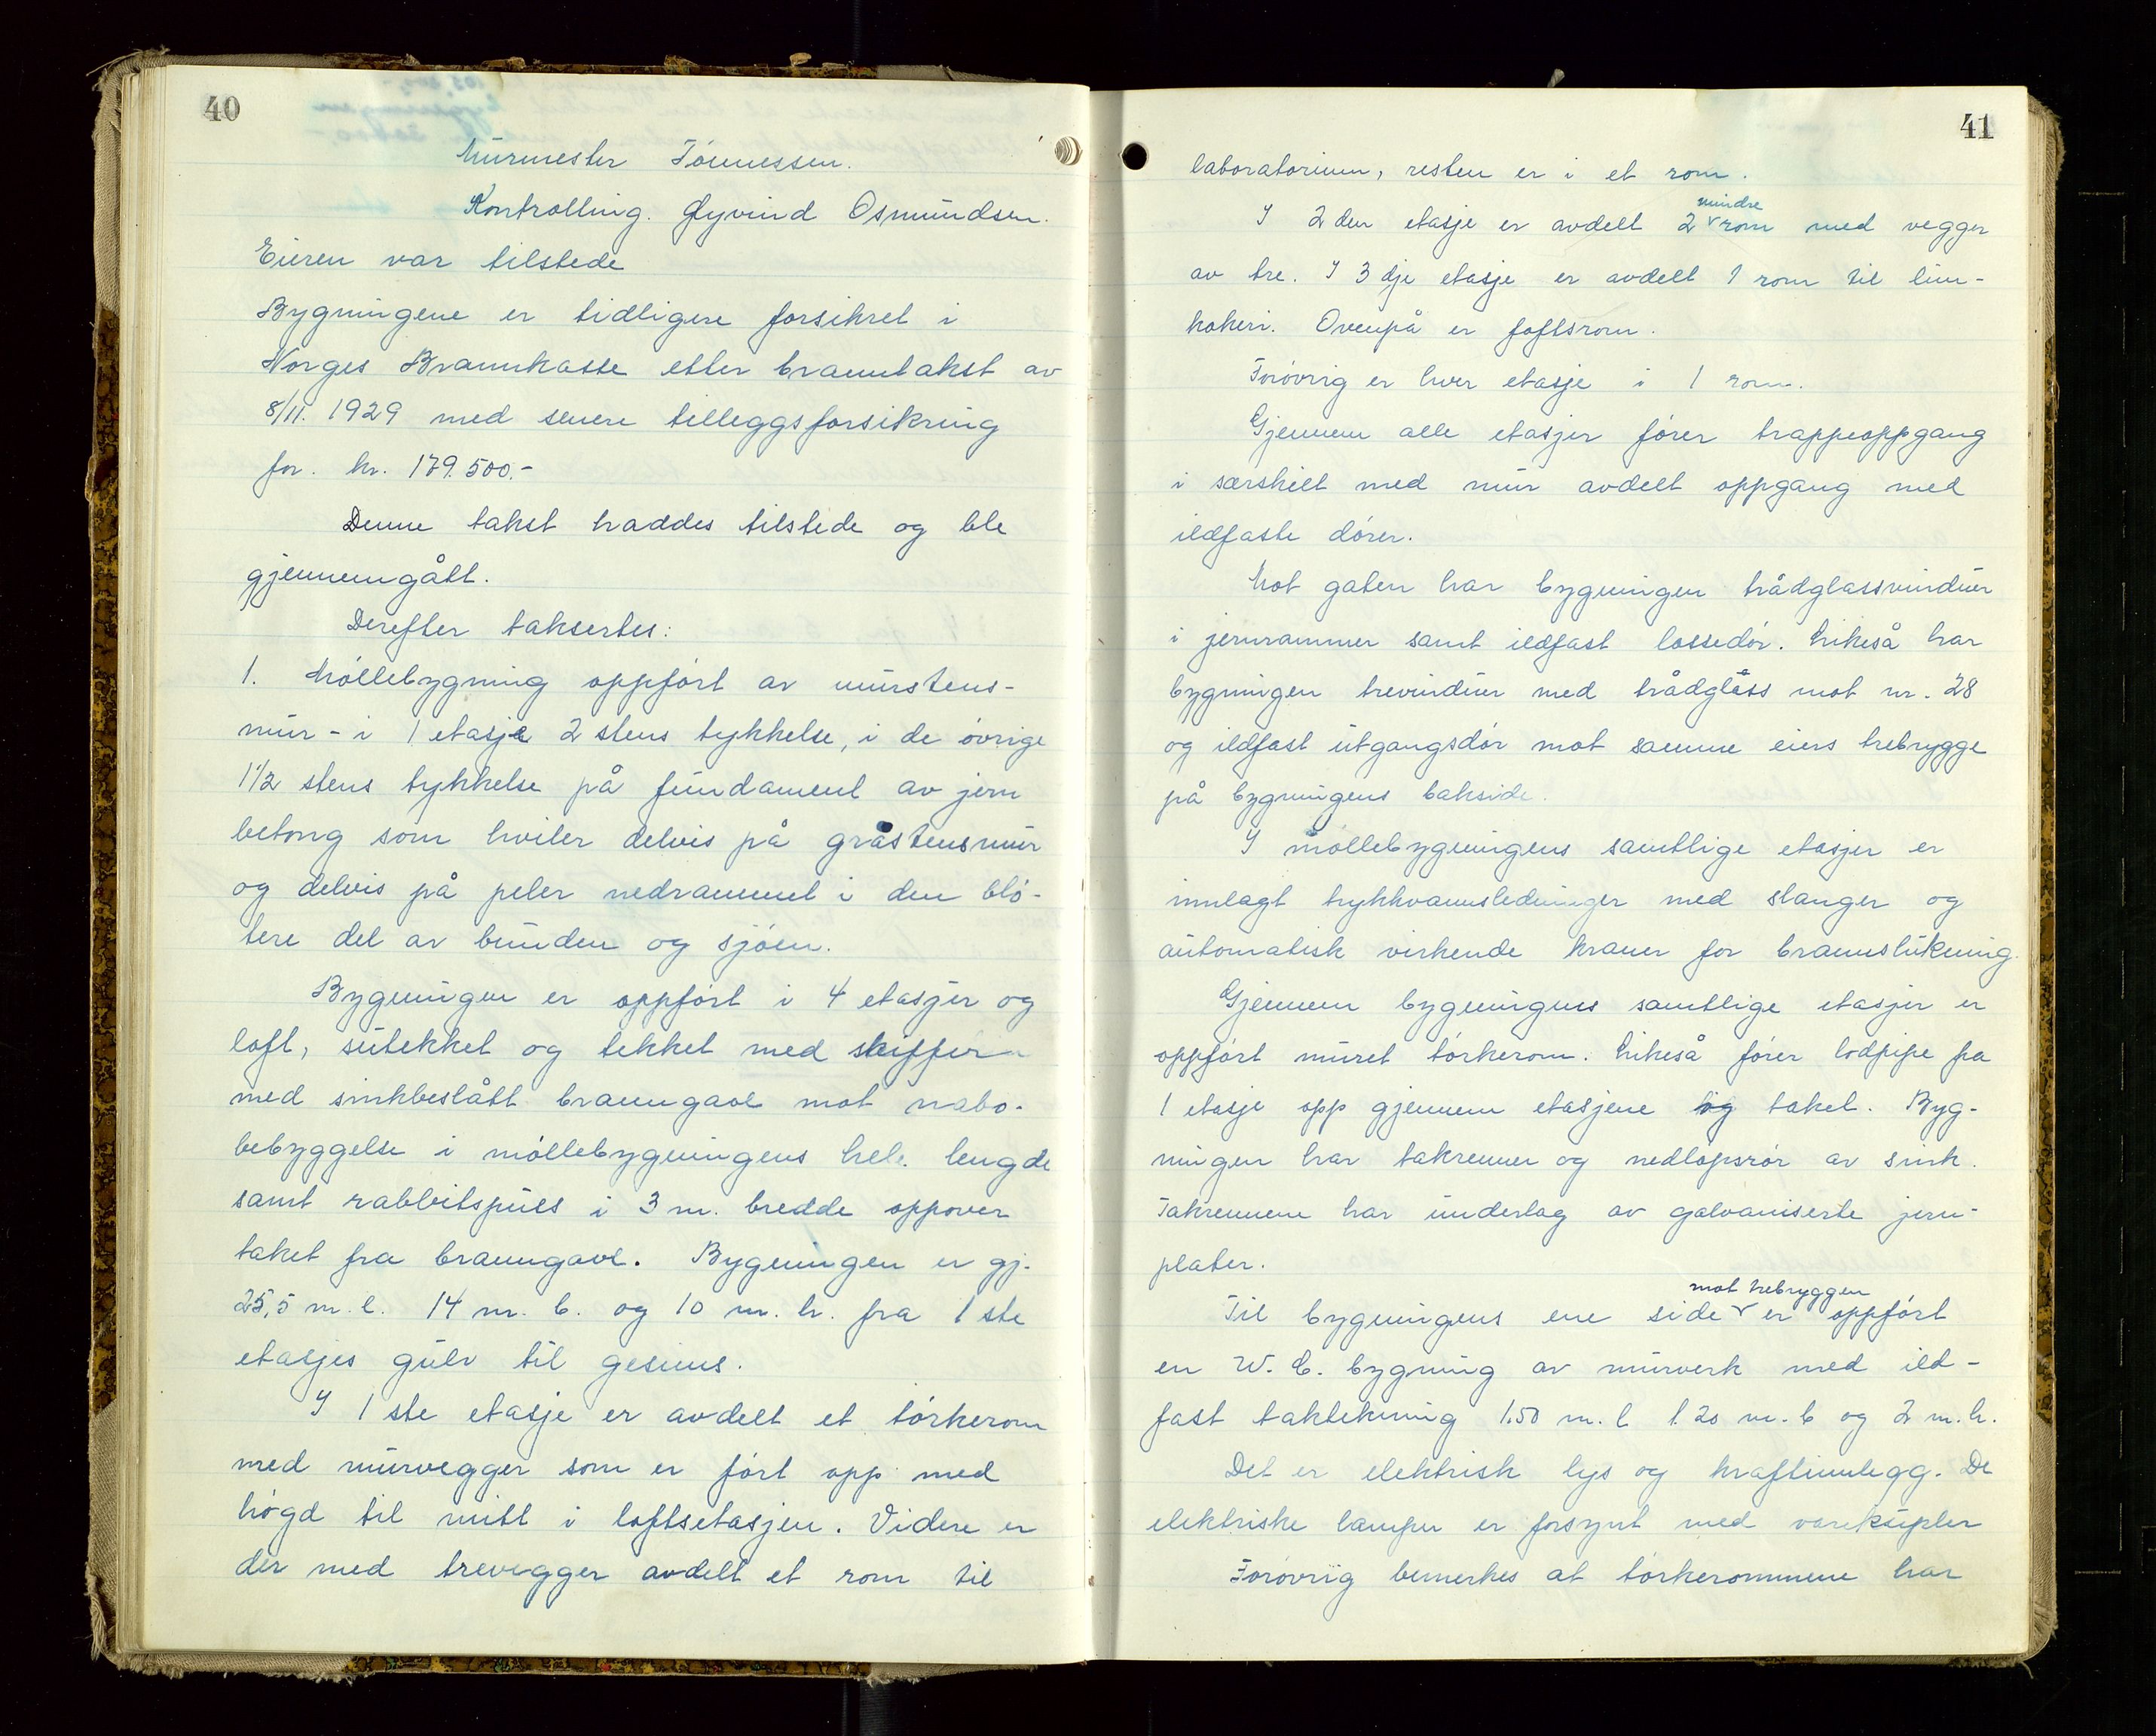 40
Murmester Tönnessen.
Kontrolling. Øyvind Osmundsen.
Eieren var tilstede
Bygningene er tidligere forsikret i
Norges Brannkasse etter branntakst av
8/11. 1929 med senere tilleggsforsikring
for. kr. 179.500.-
Denne takst haddes tilstede og ble
gjennemgått.
Derefter taksertes:
1. Möllebygning oppfört av murstens-
mur - i 1 etasje 2 stens tykkelse, i de övrige
1 1/2 stens tykkelse på fundament av jern
betong som hviler delvis på gråstensmur
og delvis på peler nedrammet i den blö-
tere del av bunden og sjöen.
Bygningen er oppfört i 4 etasjer og
loft, sutekket og tekket med skiffer
med sinkbeslått branngavl mot nabo-
bebyggelse i möllebygningens hele lengde
samt rabbitspuss i 3 m. bredde oppover
taket fra branngavl. Bygningen er gj.
25,5 m. l. 14 m. b. og 10 m. h. fra 1 ste
etasjes gulv til gesims.
I 1 ste etasje er avdelt et törkerom
med murvegger som er fört opp med
högd til mitt i loftsetasjen. Videre er
der med trevegger avdelt et rom til
41
laboratorium, resten er i et rom.
mindre
I 2 den etasje er avdelt 2 rom med vegger
av tre. I 3 dje etasje er avdelt 1 rom til lim-
kokeri. Ovenpå er loftsrom.
Forövrig er hver etasje i 1 rom.
Gjennem alle etasjer förer trappeoppgang
i særskilt med mur avdelt oppgang med
ildfaste dörer.
Mot gaten har bygningen trådglassvinduer
i jernrammer samt ildfast lossedör. Likeså har
bygningen trevinduer med trådglass mot nr. 28
og ildfast utgangsdör mot samme eiers trebrygge
på bygningens bakside.
I möllebygningens samtlige etasjer er
innlagt trykkvannsledninger med slanger og
automatisk virkende kraner for brannslukning.
Gjennem bygningens samtlige etasjer er
oppfört muret törkerom. Likeså förer lodpipe fra
1 etasje opp gjennem etasjene og taket. Byg-
ningen har takrenner og nedlöpsrör av sink.
Takrennene har underlag av galvaniserte jern-
plater.
mot trebryggen
Til bygningens ene side er oppfört
en W. C. bygning av murverk med ild-
fast taktekning 1.50 m. l 1.20 m. b og 2 m. h.
Det er elektrisk lys og kraftinnlegg. De
elektriske lamper er forsynt med vernekupler
Forövrig bemerkes at törkerommene har